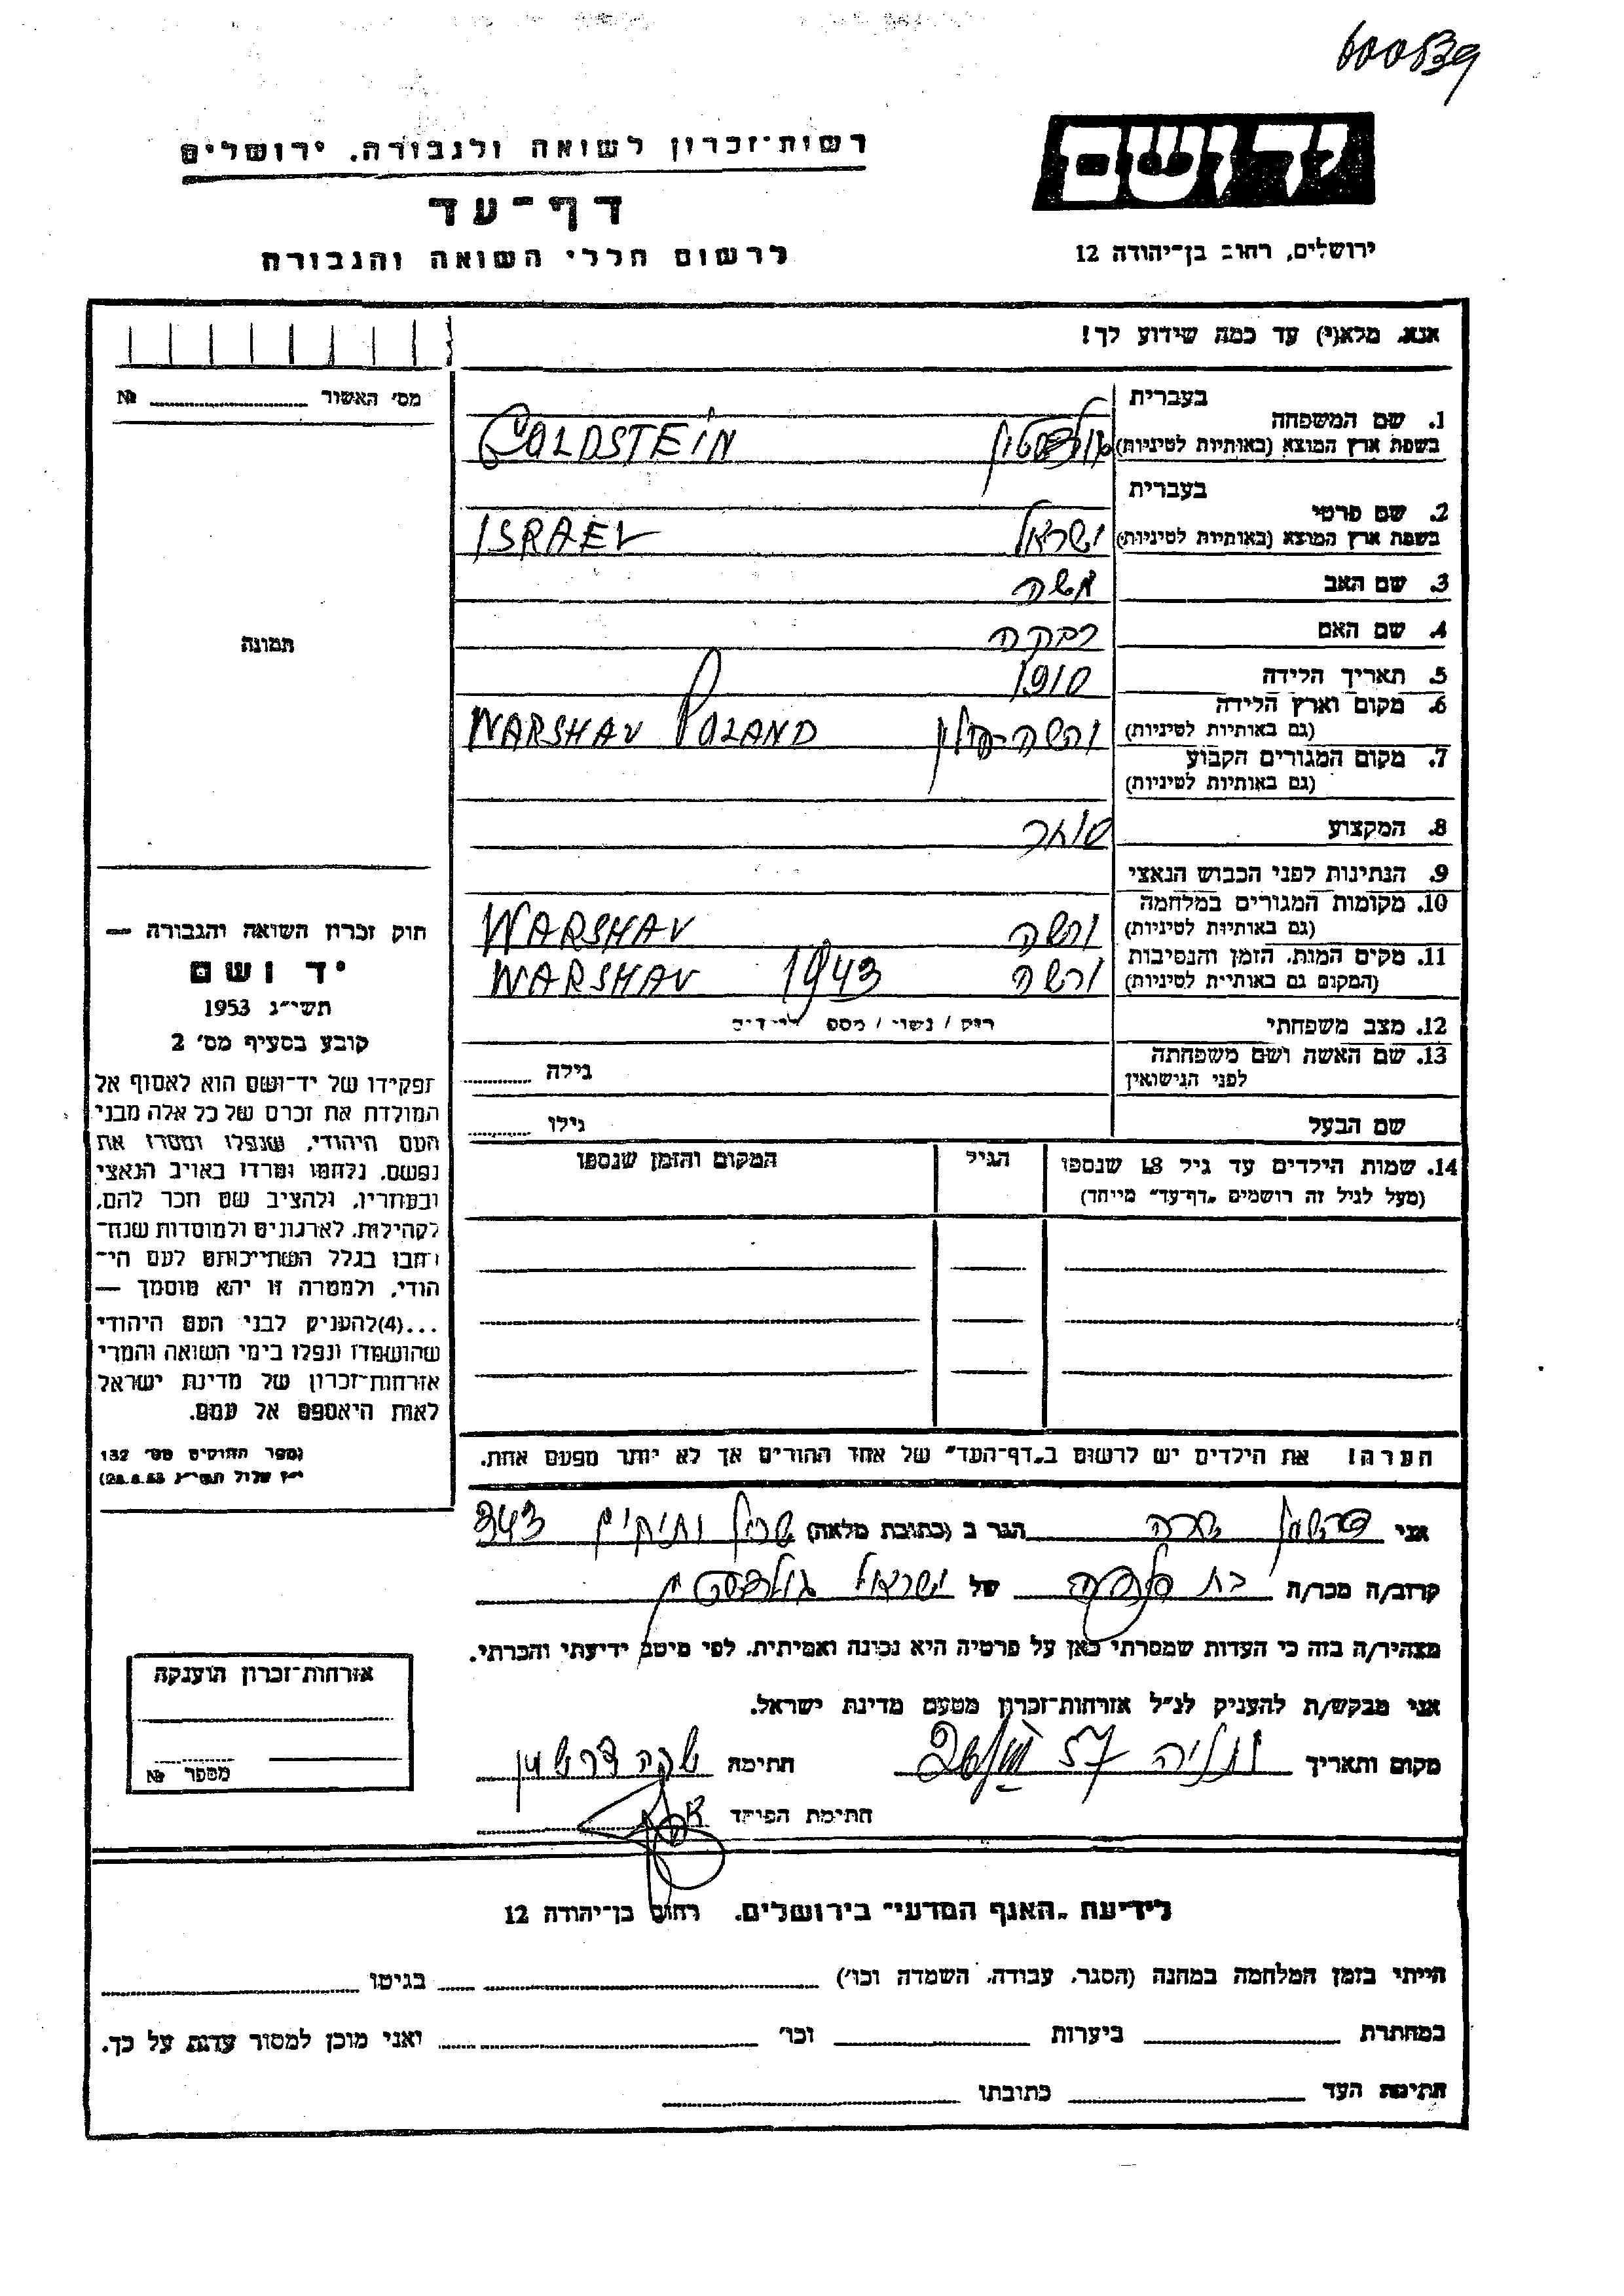 600839
יד ושם
רשות־זכרון לשואה ולגבורה. ירושלים
דף־עד
ירושלים, רחוב בן־יהודה 12
לרשום חללי השואה והגבורה
אנא, מלא(י) עד כמה שידוע לך!
מס׳ האשור №
בעברית
1. שם המשפחה
בשפת ארץ המוצא (באותיות לטיניות)
גולדשטיין GOLDSTEIN
בעברית
2. שם פרטי
בשפת ארץ המוצא (באותיות לטיניות)
ישראל ISRAEL
3. שם האב משה
4. שם האם רבקה
תמונה
5. תאריך הלידה 1910
6. מקום וארץ הלידה
(גם באותיות לטיניות)
ורשה פולין WARSHAV POLAND
7. מקום המגורים הקבוע
(גם באותיות לטיניות)
8. המקצוע סוחר
9. הנתינות לפני הכבוש הנאצי
10. מקומות המגורים במלחמה
(גם באותיות לטיניות)
ורשה WARSHAV
11. מקים המות, הזמן והנסיבות
(המקום גם באותיית לטיניות)
ורשה 1943 WARSHAV
12. מצב משפחתי
רוק / נשוי / מספ׳ ילדים
13. שם האשה ושם משפחתה
לפני הנישואין
גילה
שם הבעל גילו
14. שמות הילדים עד גיל 18 שנספו הגיל המקום והזמן שנספו
(מעל לגיל זה רושמים „דף־עד״ מייחד)
חוק זכרון השואה והגבורה —
יד ושם
תשי״ג 1953
קובע בסעיף מס׳ 2
תפקידו של יד־ושם הוא לאסוף אל
המולדת את זכרם של כל אלה מבני
העם היהודי, שנפלו ומסרו את
נפשם, נלחמו ומרדו באויב הנאצי
ובעוזריו, ולהציב שם וזכר להם,
לקהילות, לארגונים ולמוסדות שנח־
רחבו בגלל השתייכותם לעם הי־
הודי, ולמטרה זו יהא מוסמך —
...(4)להעניק לבני העם היהודי
שהושמדו ונפלו בימי השואה והמרי
אזרחות־זכרון של מדינת ישראל
לאות היאספם אל עמם.
(ספר החוקים מס׳ 132
י״ז אלול תשי״ג 28.8.53)
הערה! את הילדים יש לרשום ב„דף־העד״ של אחד ההורים אך לא יותר מפעם אחת.
אני שרה הגר ב (כתובת מלאה) שכון ותיקים 343
קרוב/ה מכר/ה בת של ישראל גולדשטיין
מצהיר/ה בזה כי העדות שמסרתי כאן על פרטיה היא נכונה ואמיתית, לפי מיטב ידיעתי והכרתי.
אני מבקש/ת להעניק לנ״ל אזרחות־זכרון מטעם מדינת ישראל.
מקום ותאריך נתניה 57 חתימה שרה
חתימת הפוקד
אזרחות־זכרון הוענקה
מספר №
לידיעת „האגף המדעי״ בירושלים. רחוב בן־יהודה 12
הייתי בזמן המלחמה במחנה (הסגר, עבודה, השמדה וכו׳) בגיטו
במחתרת ביערות וכו׳ ואני מוכן למסור עדות על כך.
חתימת העד כתובתו